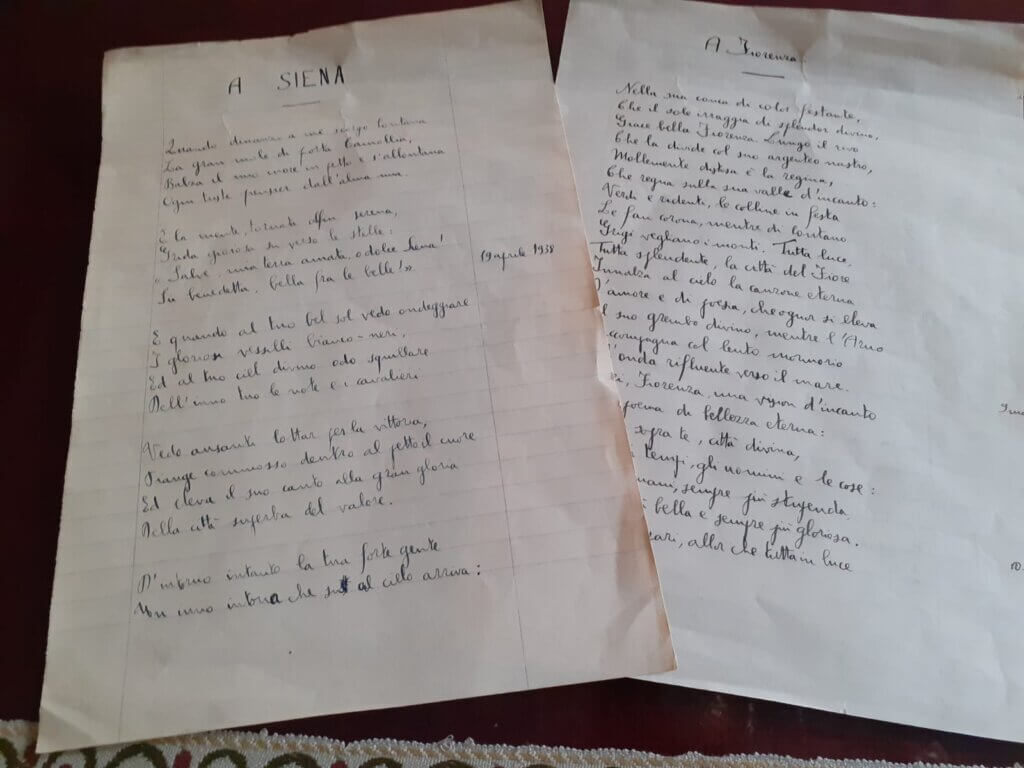 A SIENA
Quando dinanzi a me scorgo lontana
La gran mole di porta Camollia,
Balza il mio cuore in petto e s'allontana
Ogni triste pensier dall'alma mia.
E la mente, tornata alfin serena,
Grida gioiosa su verso le stelle:
"Salve, mia terra amata, o dolce Siena!
Sii benedetta, bella fra le belle!".
19 aprile 1938
E quando al tuo bel sol vedo ondeggiare
I gloriosi vessilli bianco-neri,
Ed al tuo ciel divino odo squillare
Dell'inno tuo le note e i cavalieri
Vedo ansanti lottar per la vittoria,
Piange commosso dentro al petto il cuore
Ed eleva il suo canto alla gran gloria
Della città superba del valore.
D'intorno intanto la tua forte gente
Un inno intona che su al cielo arriva:
A Fiorenza
Nella sua conca di color festante,
Che il sole irraggia di splendor divino,
Giace bella Fiorenza. Lungo il rivo
Che la divide col suo argenteo nastro,
Mollemente distesa è la regina,
Che regna sulla sua valle d'incanto:
Verdi e ridenti, le colline in festa
Le fan corona, mentre di lontano
Grigi vegliano i monti. Tutta luce,
Tutta splendente, la città del Fiore
Innalza al cielo la canzone eterna
D'amore e di poesia, che ognor si eleva
l suo grembo divino, mentre l'Arno
ccompagna col lento mormorio
onda rifluente verso il mare.
ei, Fiorenza, una vision d'incanto
poema di bellezza eterna:
sopra te, città divina,
tempi, gli uomini e le cose:
mani, sempre più stupenda.
bella e sempre più gloriosa.
ari, allor che tutta in luce